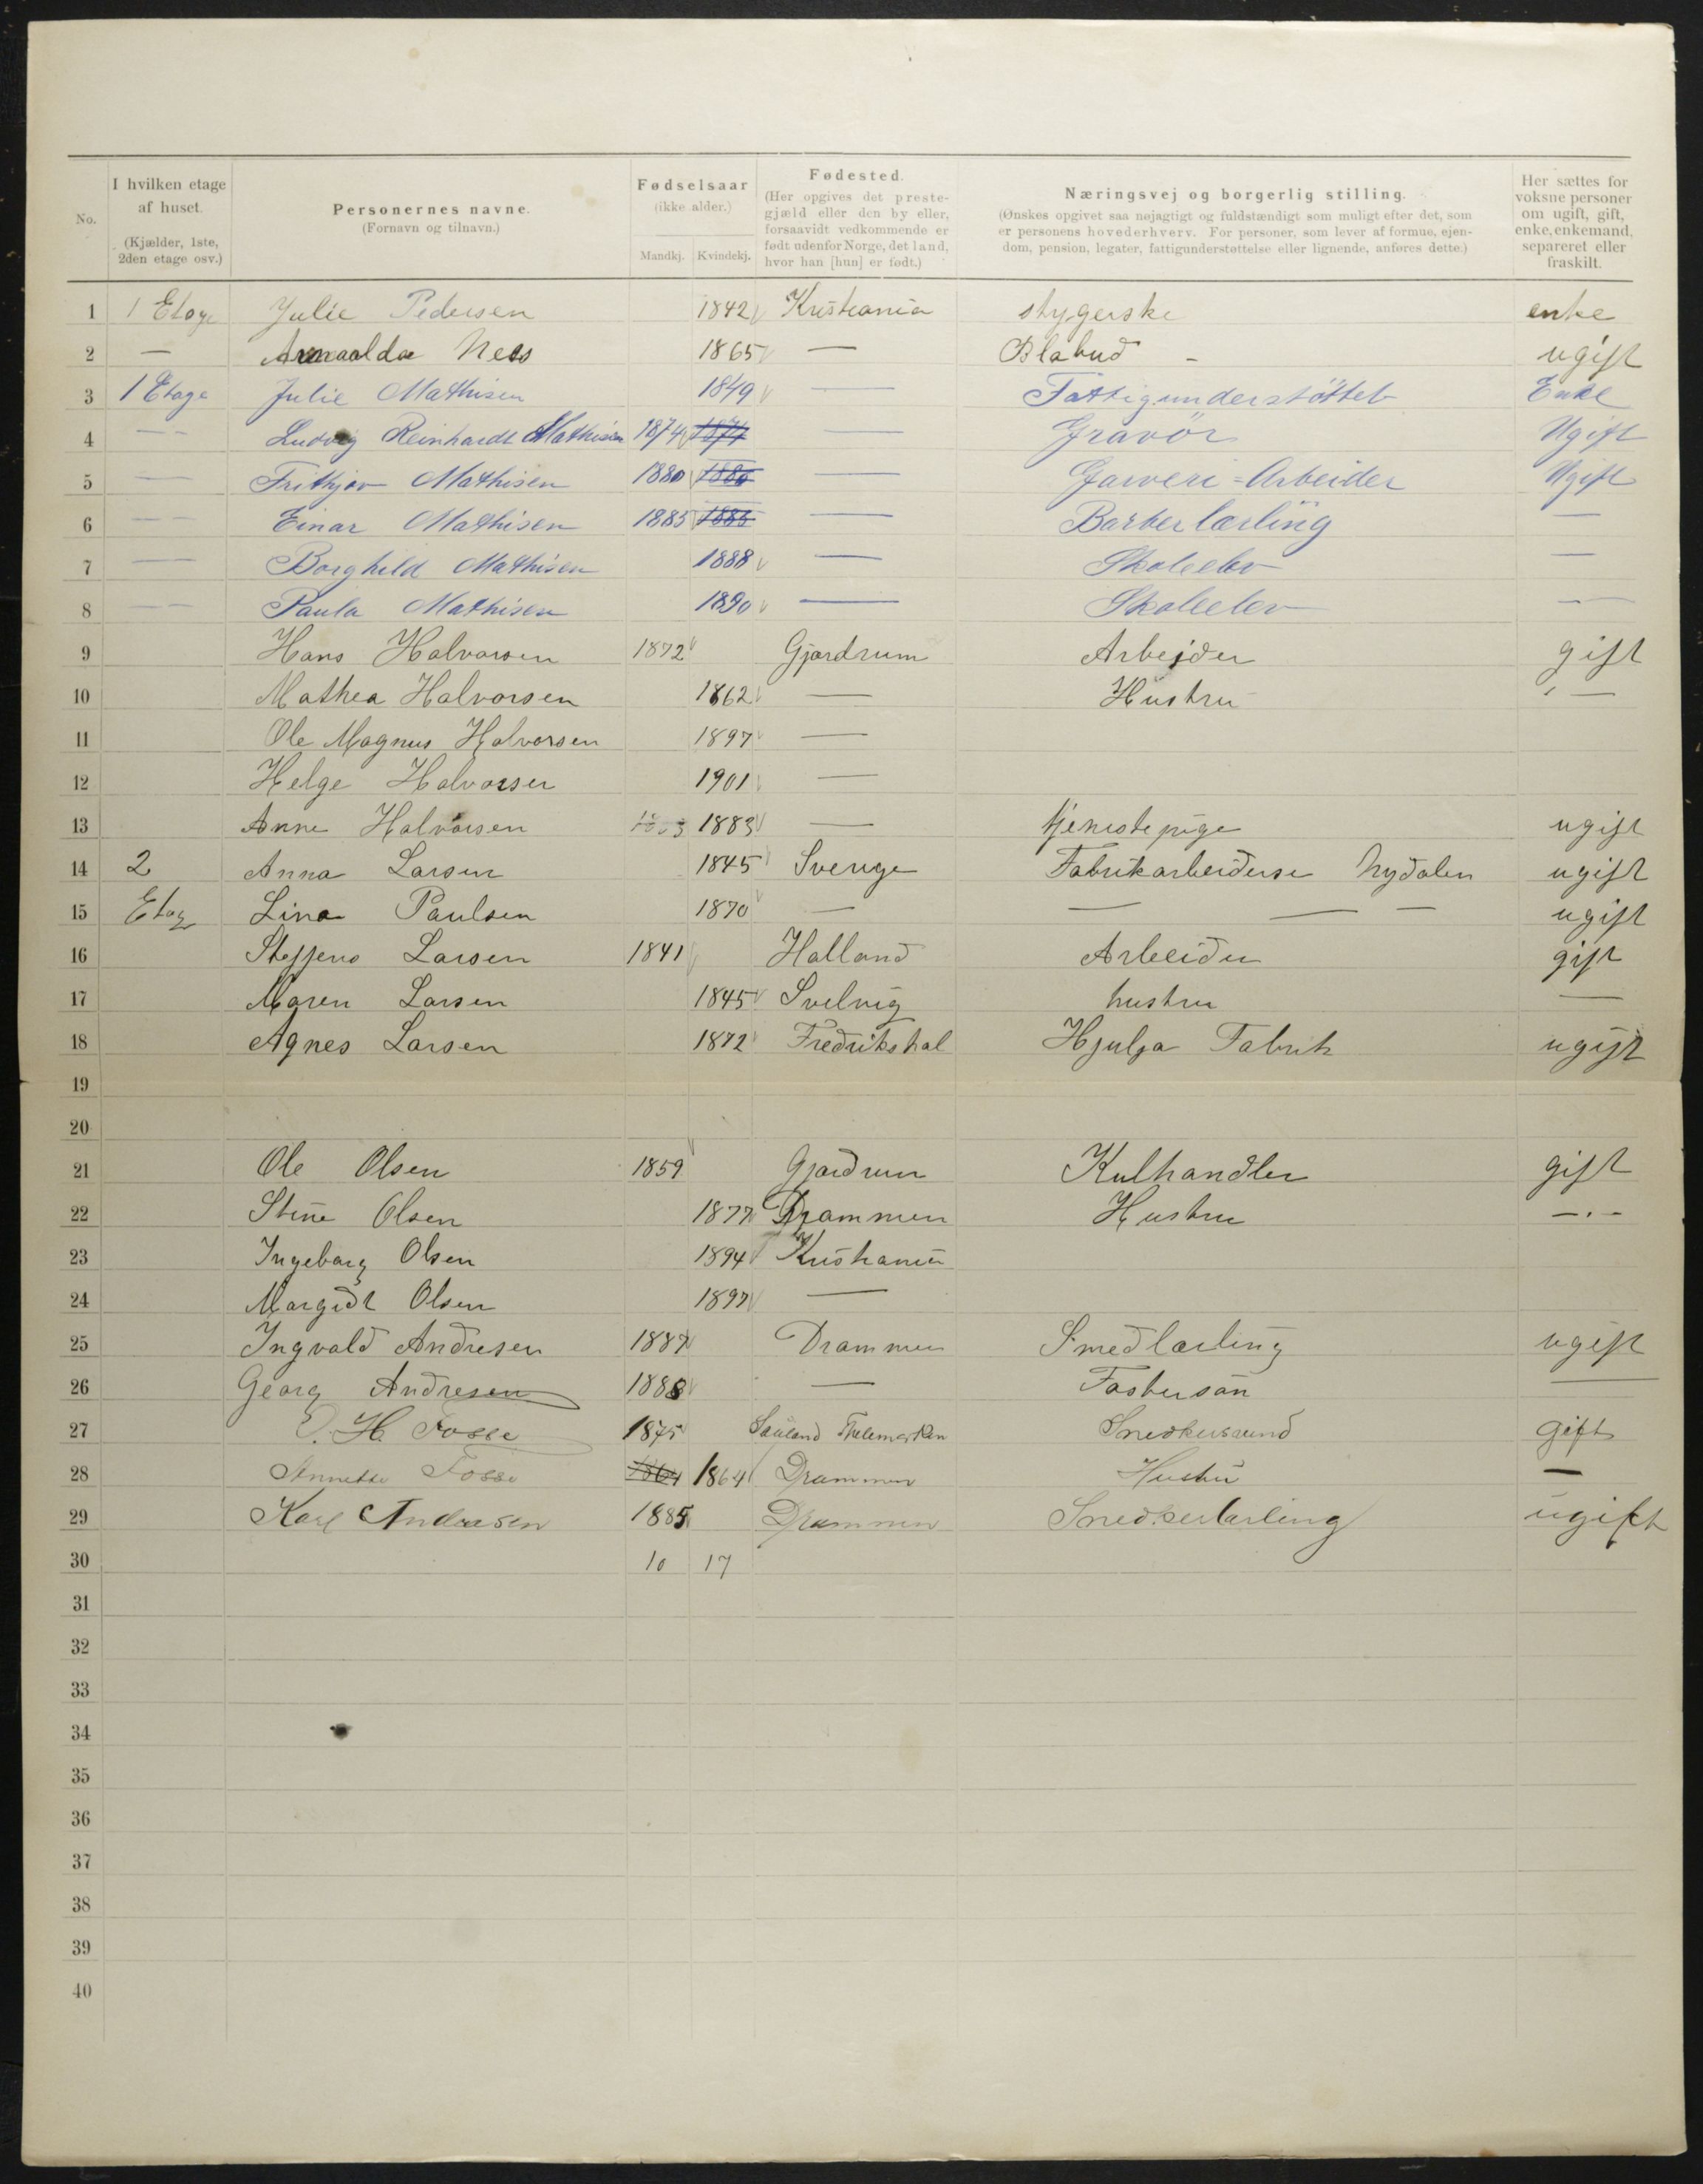 No.
I hvilken etage af huset. (Kjælder, 1ste, 2den etage osv.)
Personernes navne. (Fornavn og tilnavn.)
Fødselsaar (ikke alder.) Mandkj. Kvindekj.
Fødested. (Her opgives det prestegjæld eller den by eller, forsaavidt vedkommende er født udenfor Norge, det land, hvor han [hun] er født.)
Næringsvej og borgerlig stilling. (Ønskes opgivet saa nøjagtigt og fuldstændigt som muligt efter det, som er personens hovederhverv. For personer, som lever af formue, ejendom, pension, legater, fattigunderstøttelse eller lignende, anføres dette.)
Her sættes for voksne personer om ugift, gift, enke, enkemand, separeret eller fraskilt.
1 1 Etage Julie Pedersen 1842 Kristiania strygerske enke
2 — Ness 1865 — Blabud - ugift
3 1 Etage Julie Mathisen 1849 — Fattigunderstöttet Enke
4 — Ludvig Reinhardt Mathisen 1874 1874 — Gravör Ugift
5 — Frithjov Mathisen 1880 1880 — Garveri=Arbeider Ugift
6 — Einar Mathisen 1885 1885 — Barberlærling —
7 — Borghild Mathisen 1888 — Skoleelev —
8 — Paula Mathisen 1890 — Skoleelev —
9 Hans Halvorsen 1872 Gjerdrum Arbejder gift
10 Mathea Halvorsen 1862 — Hustru —
11 Ole Magnus Halvorsen 1897 —
12 Helge Halvorsen 1901 —
13 Anne Halvorsen 1883 — tjenestepige ugift
14 2 Anna Larsen 1845 Sverige Fabrikarbeiderse Nydalen ugift
15 Etag Lina Paulsen 1870 — — — — ugift
16 Steffens Larsen 1841 Halland Arbeider gift
17 Maren Larsen 1845 Svelvig hustru —
18 Agnes Larsen 1872 Fredrikshal Hjulja Fabrik ugift
19
20
21 Ole Olsen 1859 Gjerdrum Kulhandler gift
22 Stine Olsen 1877 Drammen Hustru —.—
23 Ingeborg Olsen 1894 Kristiania
24 Margidt Olsen 1897 —
25 Ingvald Andresen 1887 Drammen Smedlærling ugift
26 Georg Andresen 1888 — Fostersøn —
27 O. H. Fosse 1875 Sauland Thelemarken Snedkersvend gift
28 Annette Fosse 1864 1864 Drammen Hustru —
29 Karl Andresen 1885 Drammen Snedkerlærling ugift
30 10 17
31
32
33
34
35
36
37
38
39
40